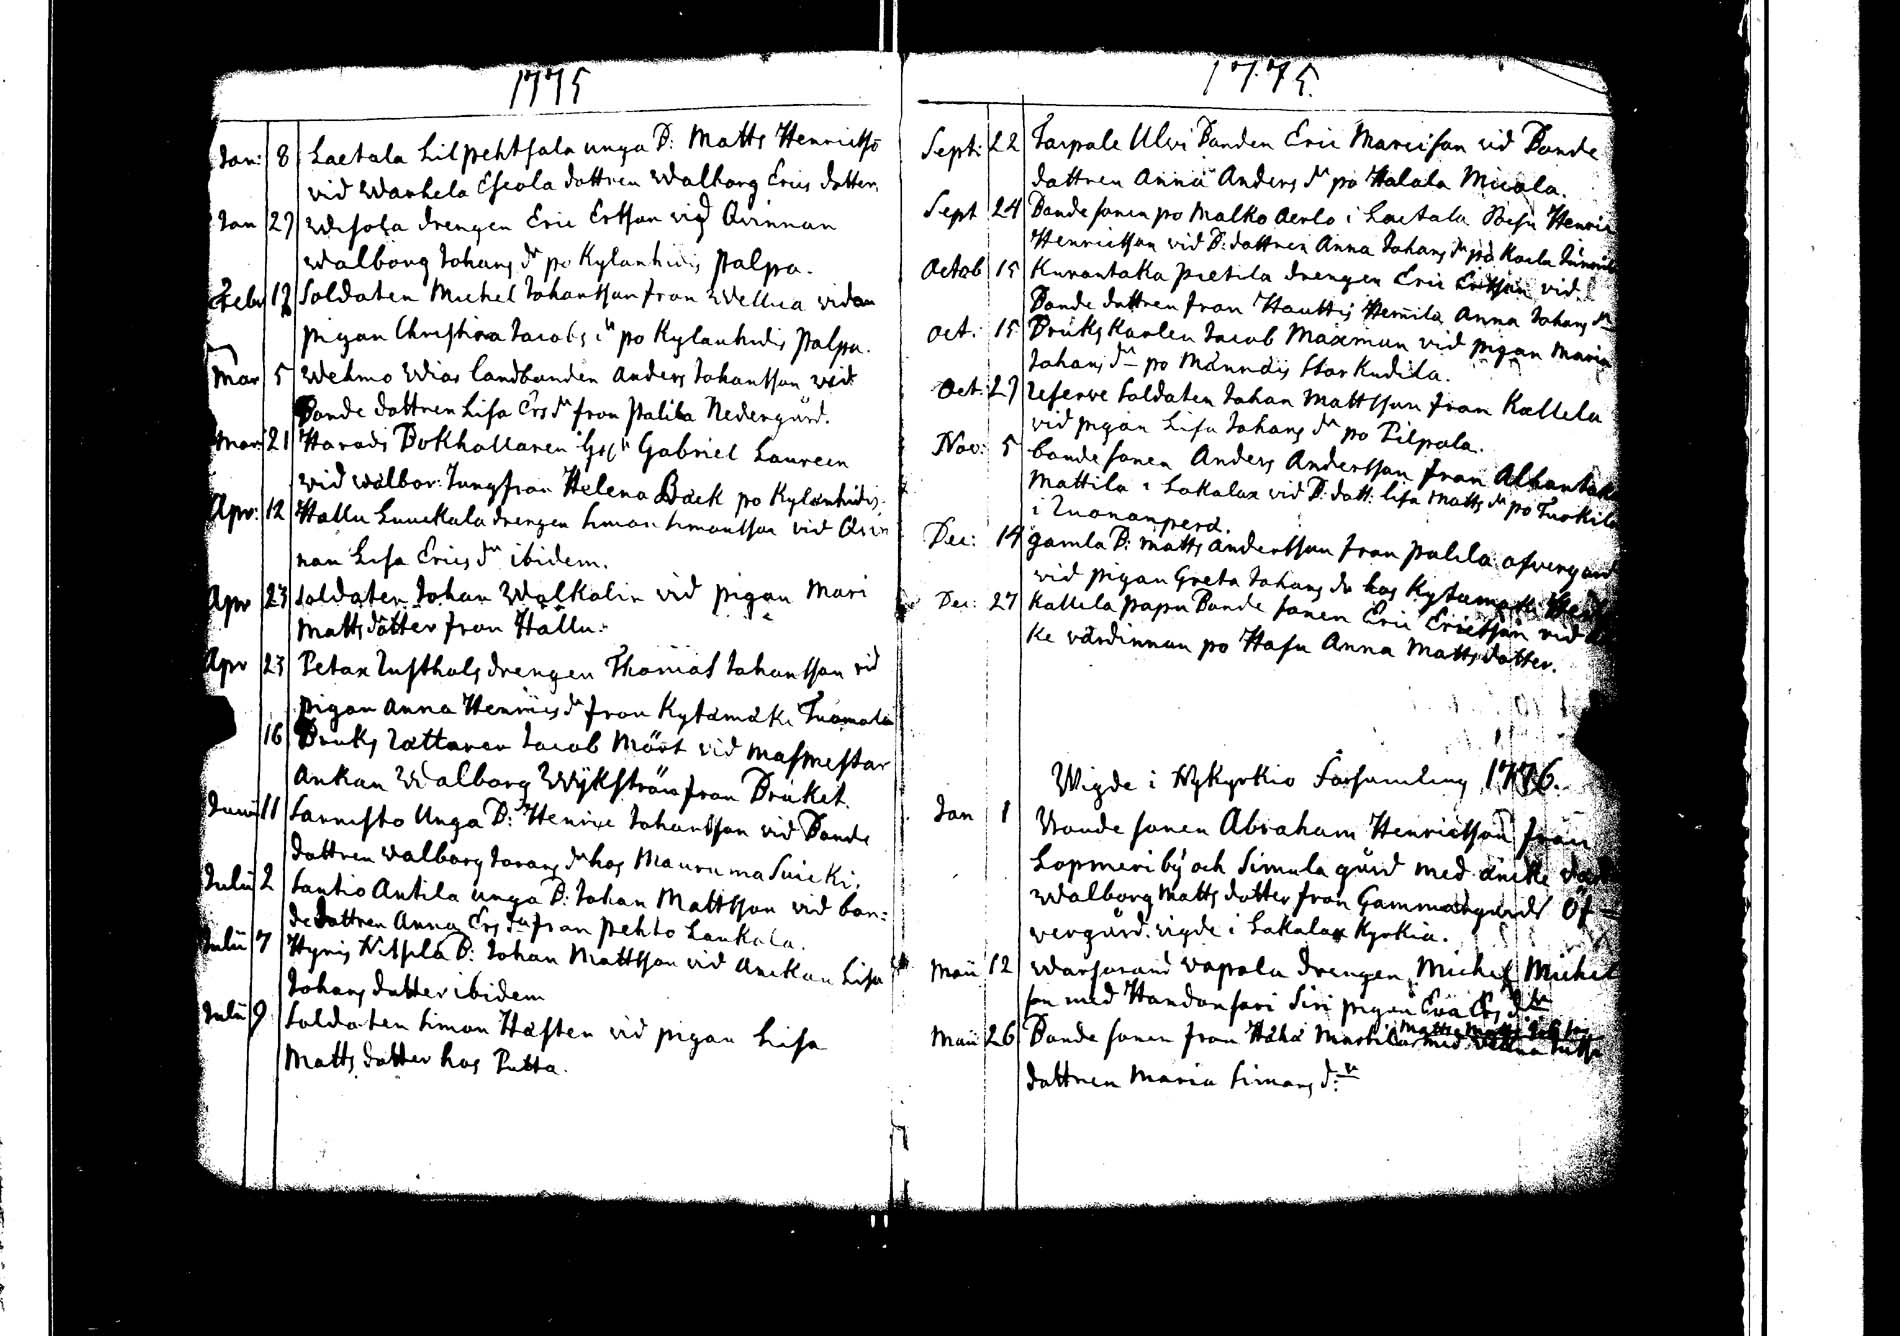 1775
Jan: 8 Laetala Lilpehtsala unga B: Matts Henrictsō
vid Warhela Eseola dottren Walborg Erics dotter.
Jan 27 Wesola drengen Eric Ersson vid Qvinnan
Walborg Johans dr po Kylanhidis Palpa.
Febr 12 Soldaten Michel Johansson fron Wellua vid
pigan Christina Jacobs dr po Kylanhidis Palpa.
Mar 5 Wehmo Wias landbonden Anders Johansson vid
Bonde dottren Lisa Ers dr fron Palila Nedergård.
Mar: 21 Harads Bokhollaren Gabriel Laureen
vid välbor: Jungfrau Helena Bäck po Kylänhidis
Apr: 12 Hallu Luuckala drengen Simon Simonsson vid Qvin
nan Lisa Erics dr ibidem.
Apr 23 Soldaten Johan Walkalin vid pigan Mari
Matts dotter fron Hallu.
Apr 23 Petax Lusthols drengen Thomas Johansson vid
pigan Anna Henrics dr fron Kytämäki Tuomola
16 Bruks Rättaren Jacob Mört vid Masmestar
Ankan Walborg Wykström fron Bruket.
Junii 11 Sannisto Unga B: Henric Johansson vid Bonde
dottren Walborg Jorans dr hos Mauruma Suicki.
Julii 2 Santio Antila unga B: Johan Mattsson vid bon:
de dottren Anna Ers dr fron Pehto Laukola.
Julii 7 Hyris Nissilä B: Johan Mattsson vid Anckan Lisa
Johans dotter ibidem
Julii 9 Soldaten Simon Hästen vid pigan Lisa
Matts dotter hos Putta.
1775.
Sept: 22 Taipale Ulvi Bonden Eric Marcisson vid Bonde
dottren Anna Anders dr po Halola Micola.
Sept 24 Bonde sonen po Malko Aerlo i Laetala Sochn Henric
Henricsson vid B: dottren Anna Johans dr po Kaela
Octob 15 Kurantaka Pietila drengen Eric Ersson vid
Bonde dottren fron Hauttis Hemila Anna Johans dr
Oct: 15 Bruks Karlen Jacob Maxmun vid pigan Maria
Johans dr po Männäis Stor Kudila.
Oct: 27 reserve Soldaten Johan Mattsson fron Kallela
vid pigan Lisa Johans dr po Pilpala.
Nov: 5 bonde sonen Anders Andersson fron Alhontak
Mattila i Lokalax vid B: dott: Lisa Matts dr po Tuokila
i
Dec: 14 gamla B: Matts Andersson fron Palila ofvergård
vid pigan Greta Johans dr hos Kytämäki
Dec: 27 Kallela Papu Bonde sonen Eric Ericsson vid
ke värdinnan po Hasu Anna Matts dotter.
Wigde i Nykyrkio Församling 1776.
Jan 1 Bonde sonen Abraham Henricsson från
Lopmeri bÿ och Simula gård med äncke
Walborg Matts dotter fron Gammalgård Öf=
vergård. vigde i Lokalax Kyrkia.
Maii 12 Warsarand Vapola drengen Michel Michel
son med Handonsari Siri pigan Eva Ers dr
Maii 26 Bonde sonen fron Håhä
dottren Maria Simons dr